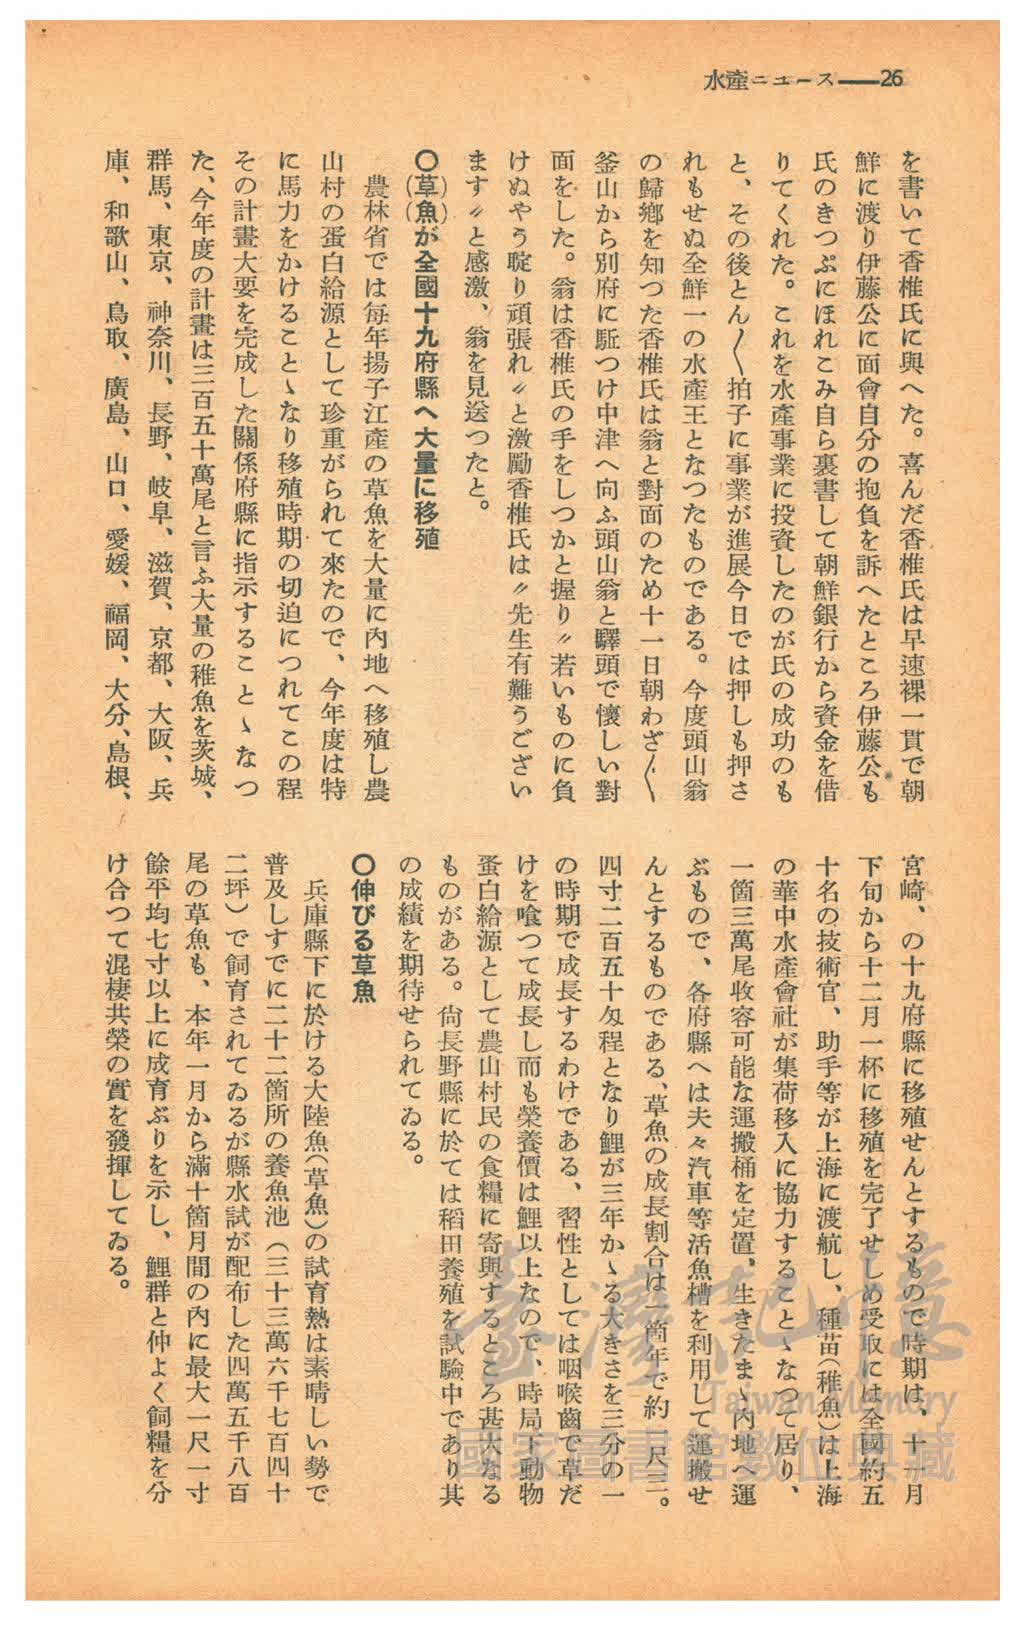 水產ニュース━━26
を書いて香椎氏に與へた。喜んだ香椎氏は早速裸一貫で朝
鮮に渡り伊藤公に面會自分の抱負を訴へたところ伊藤公も
氏のきつぷにほれこみ自ら裏書して朝鮮銀行から資金を借
りてくれた。これを水產事業に投資したのが氏の成功のも
と、その後とん〳〵拍子に事業が進展今日では押しも押さ
れもせぬ全鮮一の水產王となつたものである。今度頭山翁
の歸鄕を知つた香椎氏は翁と對面のため十一日朝わざ〳〵
釜山から別府に駈つけ中津へ向ふ頭山翁と驛頭で懷しい對
面をした。翁は香椎氏の手をしつかと握り〃若いものに負
けぬやう睲り頑張れ〃と激勵香椎氏は〃先生有難うござい
ます〃と感激、翁を見送つたと。
〇(草)(魚)が全國十九府縣へ大量に移殖
農林省では每年揚子江產の草魚を大量に內地へ移殖し農
山村の蛋白給源として珍重がられて來たので、今年度は特
に馬力をかけることゝなり移殖時期の切迫につれてこの程
その計畫大要を完成した關係府縣に指示することゝなつ
た、今年度の計畫は三百五十萬尾と言ふ大量の稚魚を茨城、
群馬、東京、神奈川、長野、岐阜、滋賀、京都、大阪、兵
庫、和歌山、鳥取、廣島、山口、愛媛、福岡、大分、島根、
宮崎、の十九府縣に移殖せんとするもので時期は、十一月
下旬から十二月一杯に移殖を完了せしめ受取には全國約五
十名の技術官、助手等が上海に渡航し、種苗(稚魚)は上海
の華中水產會社が集荷移入に協力することゝなつて居り、
一箇三萬尾收容可能な運搬桶を定置、生きたまゝ內地へ運
ぶもので、各府縣へは夫々汽車等活魚槽を利用して運搬せ
んとするものである、草魚の成長割合は一箇年で約一尺三。
四寸二百五十匁程となり鯉が三年かゝる大きさを三分の一
の時期で成長するわけである、習性としては咽喉齒で草だ
けを喰つて成長し而も榮養價は鯉以上なので、時局下動物
蛋白給源として農山村民の食糧に寄與するところ甚大なる
ものがある。尙長野縣に於ては稻田養殖を試驗中であり其
の成績を期待せられてゐる。
〇伸びる草魚
兵庫縣下に於ける大陸魚(草魚)の試育熱は素晴しい勢で
普及しすでに二十二箇所の養魚池(三十三萬六千七百四十
二坪)で飼育されてゐるが縣水試が配布した四萬五千八百
尾の草魚も、本年一月から滿十箇月間の內に最大一尺一寸
餘平均七寸以上に成育ぶりを示し、鯉群と仲よく飼糧を分
け合つて混棲共榮の實を發揮してゐる。
臺灣記憶
Taiwan Memory
國家圖書館數位典藏